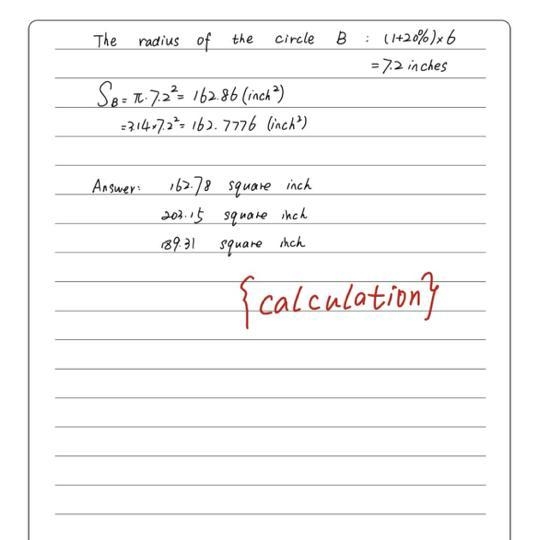 The radius of the circle B : (1+20%)×6
=7.2 inches
S_B = π·7.2²= 162.86 (inch²)
=3.14×7.2²= 162.7776 (inch²)
Answer: 162.78 square inch
203.15 square inch
189.31 square inch
{calculation}